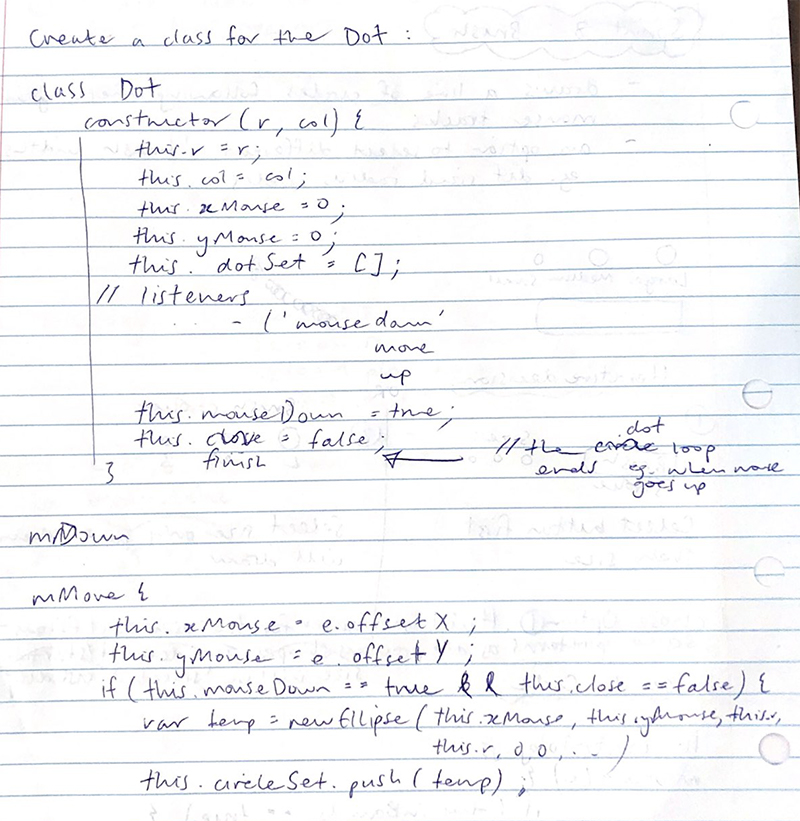 Create a class for the Dot :
class Dot
constructor (r, col) {
this.r = r;
this.col = col;
this.xMouse = 0;
this.yMouse = 0;
this. dotSet = [];
// listeners
- ('mouse down'
move
up
this.mouseDown = true;
this.close = false;
finish
}
// the circle dot loop
ends eg. when mouse
goes up
mDown
mMove {
this.xMouse = e.offsetX ;
this.yMouse = e.offsetY ;
if (this.mouseDown == true && this.close == false) {
var temp = new Ellipse (this.xMouse, this.yMouse, this.r,
this.r, 0, 0, ... )
this.circleSet.push (temp) ;